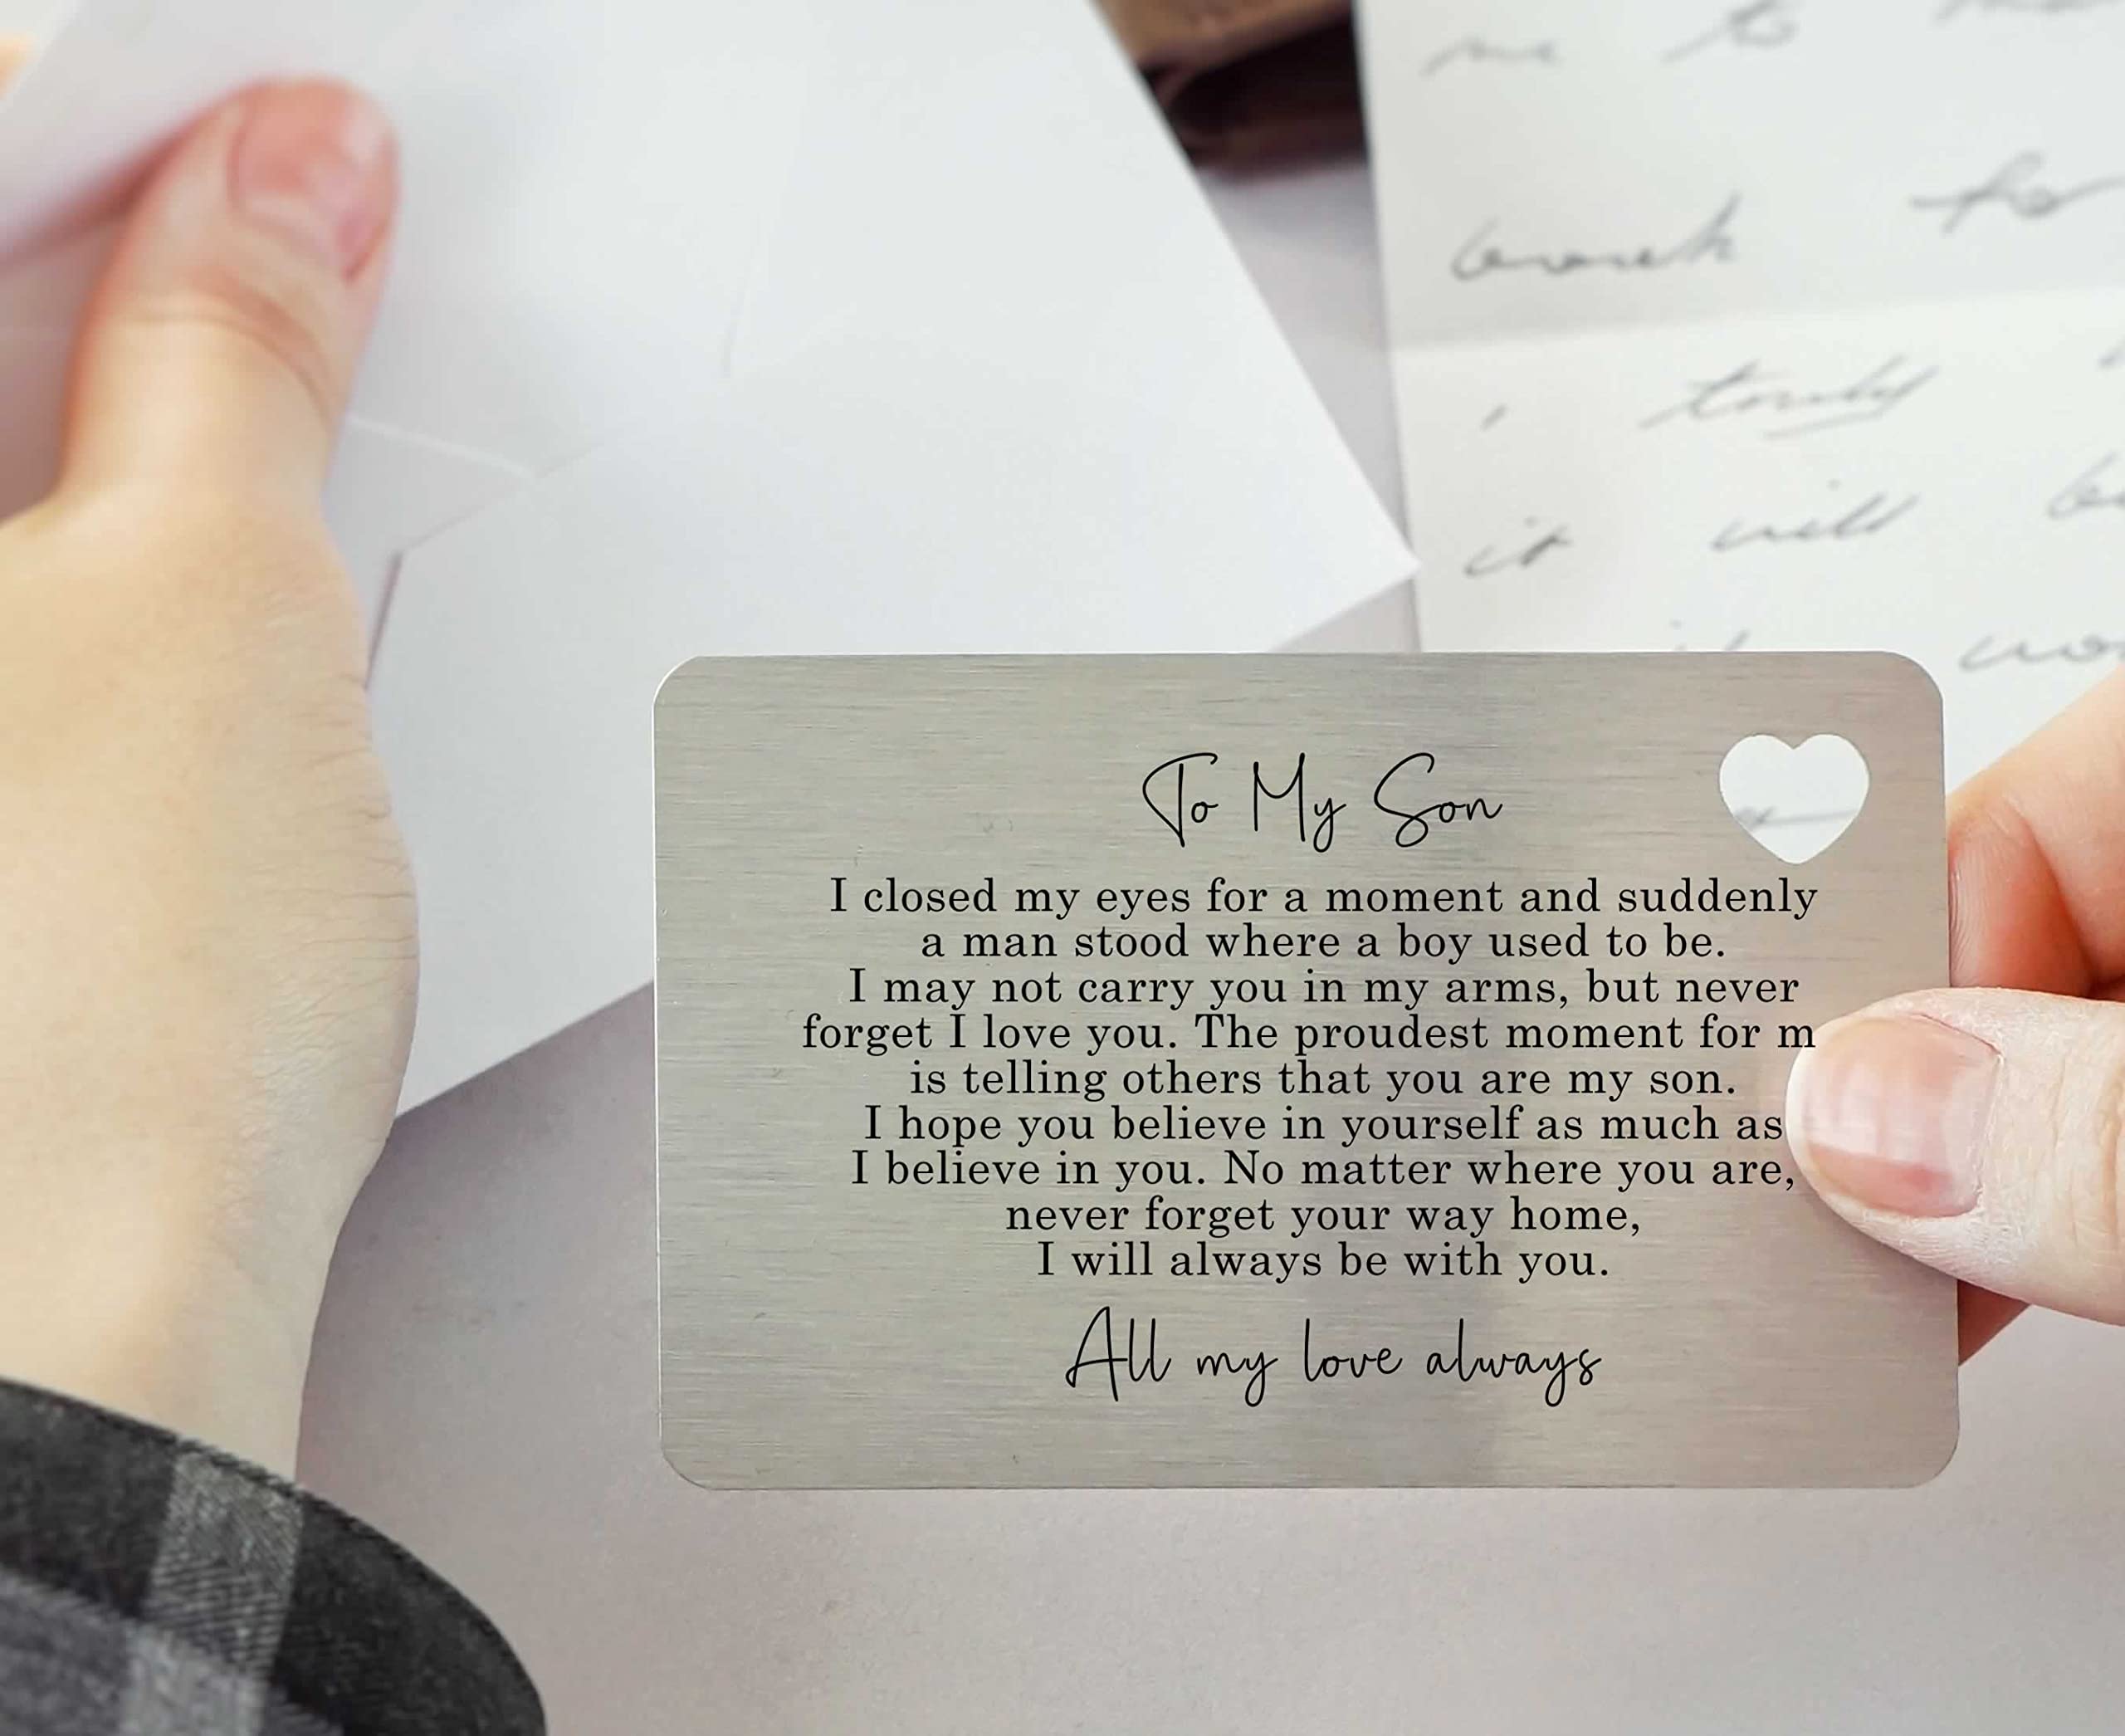 to
work for
truly
it will
To My Son
I closed my eyes for a moment and suddenly
a man stood where a boy used to be.
I may not carry you in my arms, but never
forget I love you. The proudest moment for m
is telling others that you are my son.
I hope you believe in yourself as much as
I believe in you. No matter where you are,
never forget your way home,
I will always be with you.
All my love always